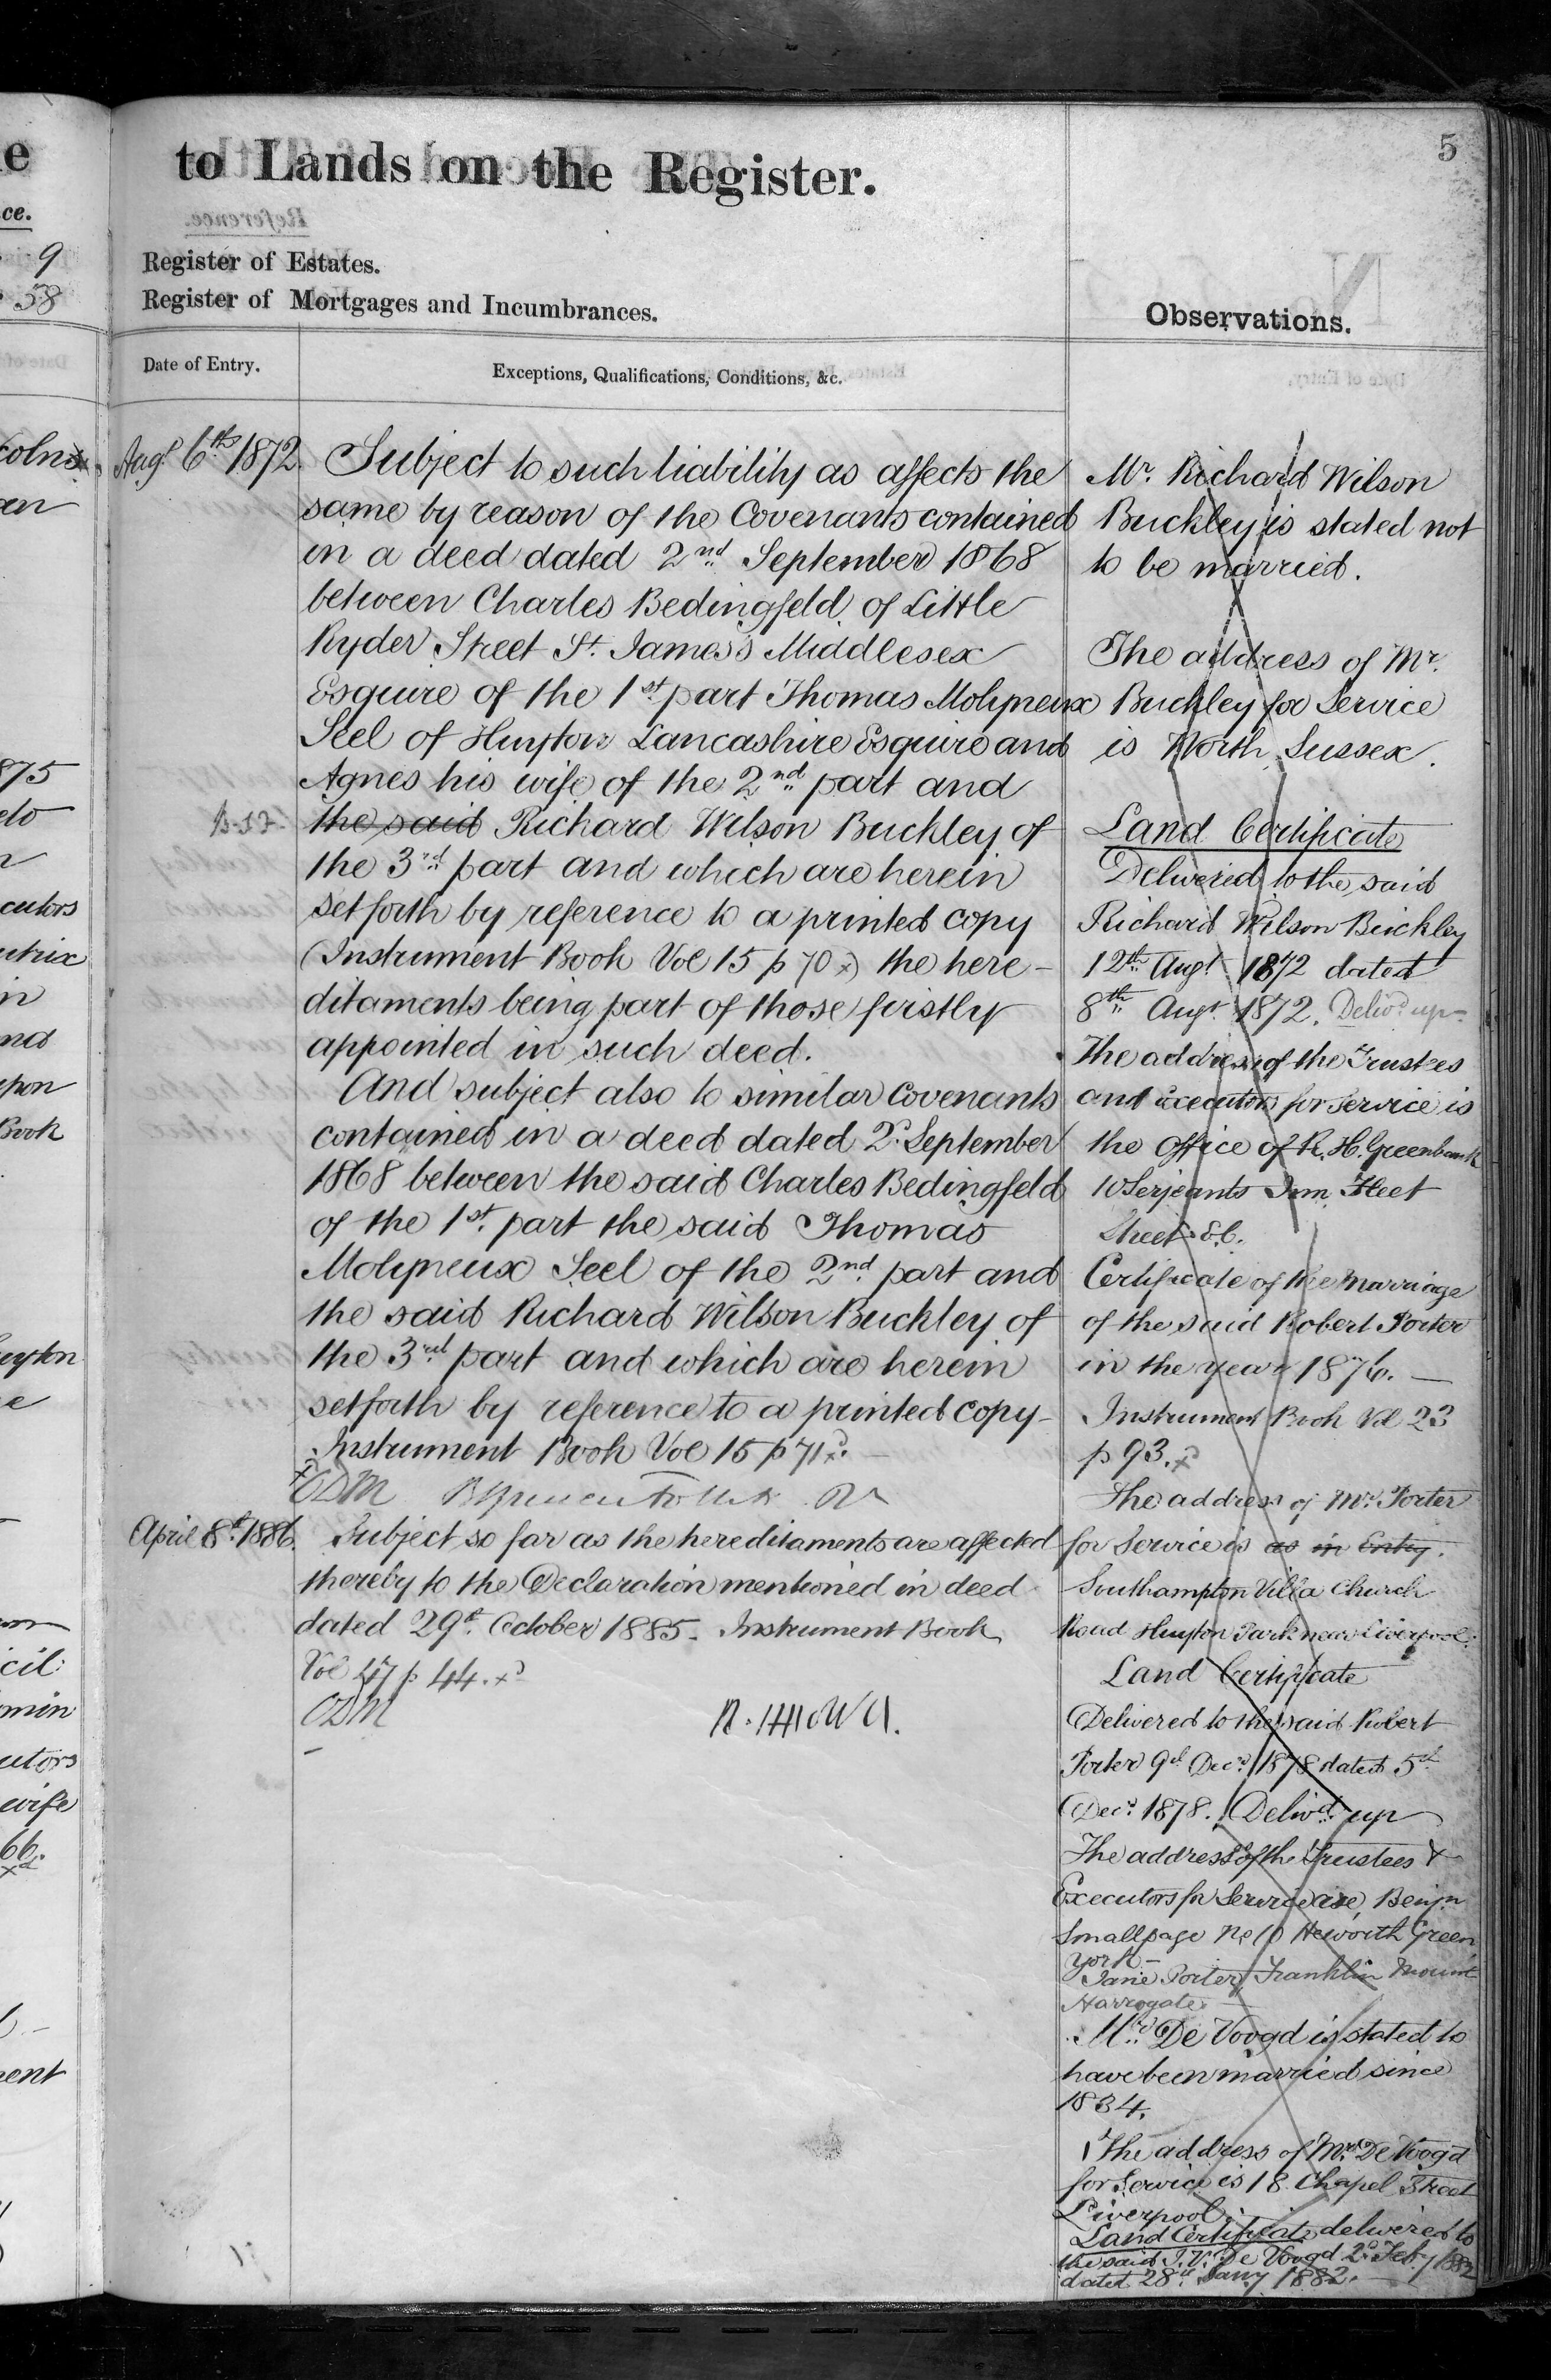 5
to Lands on the Register.
Register of Estates.
Register of Mortgages and Incumbrances.
Observations.
Date of Entry.
Exceptions, Qualifications, Conditions, &c.
Augt. 6th 1872.
Subject to such liability as affects the
same by reason of the Covenants contained
in a deed dated 2nd September 1868
between Charles Bedingfeld of Little
Ryder Street St. James's Middlesex
Esquire of the 1st part Thomas Molyneux
Seel of Huyton Lancashire Esquire and
Agnes his wife of the 2nd part and
the said Richard Wilson Buckley of
the 3rd part and which are herein
set forth by reference to a printed copy
(Instrument Book Vol 15 p 70 x) the here-
ditaments being part of those firstly
appointed in such deed.
And subject also to similar covenants
contained in a deed dated 2d. September
1868 between the said Charles Bedingfeld
of the 1st. part the said Thomas
Molyneux Seel of the 2nd. part and
the said Richard Wilson Buckley of
the 3rd part and which are herein
set forth by reference to a printed copy-
Instrument Book Vol 15 p 71 x.
April 8th. 1886.
Subject so far as the hereditaments are affected
thereby to the Declaration mentioned in deed
dated 29th. October 1885. Instrument Book
Vol 47 p 44. x
Mr. Richard Wilson
Buckley is stated not
to be married.
The address of Mr.
Buckley for Service
is Worth, Sussex.
Land Certificate
Delivered to the said
Richard Wilson Buckley
12th. Augt. 1872 dated
8th. Augt. 1872. Delivd. up-
The address of the Trustees
and Executors for service is
the office of R. H. Greenbank
10 Serjeants Inn Fleet
Street E.C.
Certificate of the marriage
of the said Robert Porter
in the year 1876. —
Instrument Book Vol 23
p 93. x
The address of Mr. Porter
for Service is as in Entry.
Southampton Villa Church
Road Huyton Park near Liverpool.
Land Certificate
Delivered to the said Robert
Porter 9th. Decr. 1878 dated 5th.
Decr. 1878. Delivd. up
The address of the Trustees &
Executors for Service are, Benjn
Smallpage No 10 Heworth Green,
York -
Jane Porter, Franklin Mount
Harrogate
Mr. De Voogd is stated to
have been married since
1834.
The address of Mr. De Voogd
for Service is 18. Chapel Street
Liverpool.
Land Certificate delivered to
the said J. V. De Voogd 2d. Feby 1882
dated 28th. Jany 1882. —